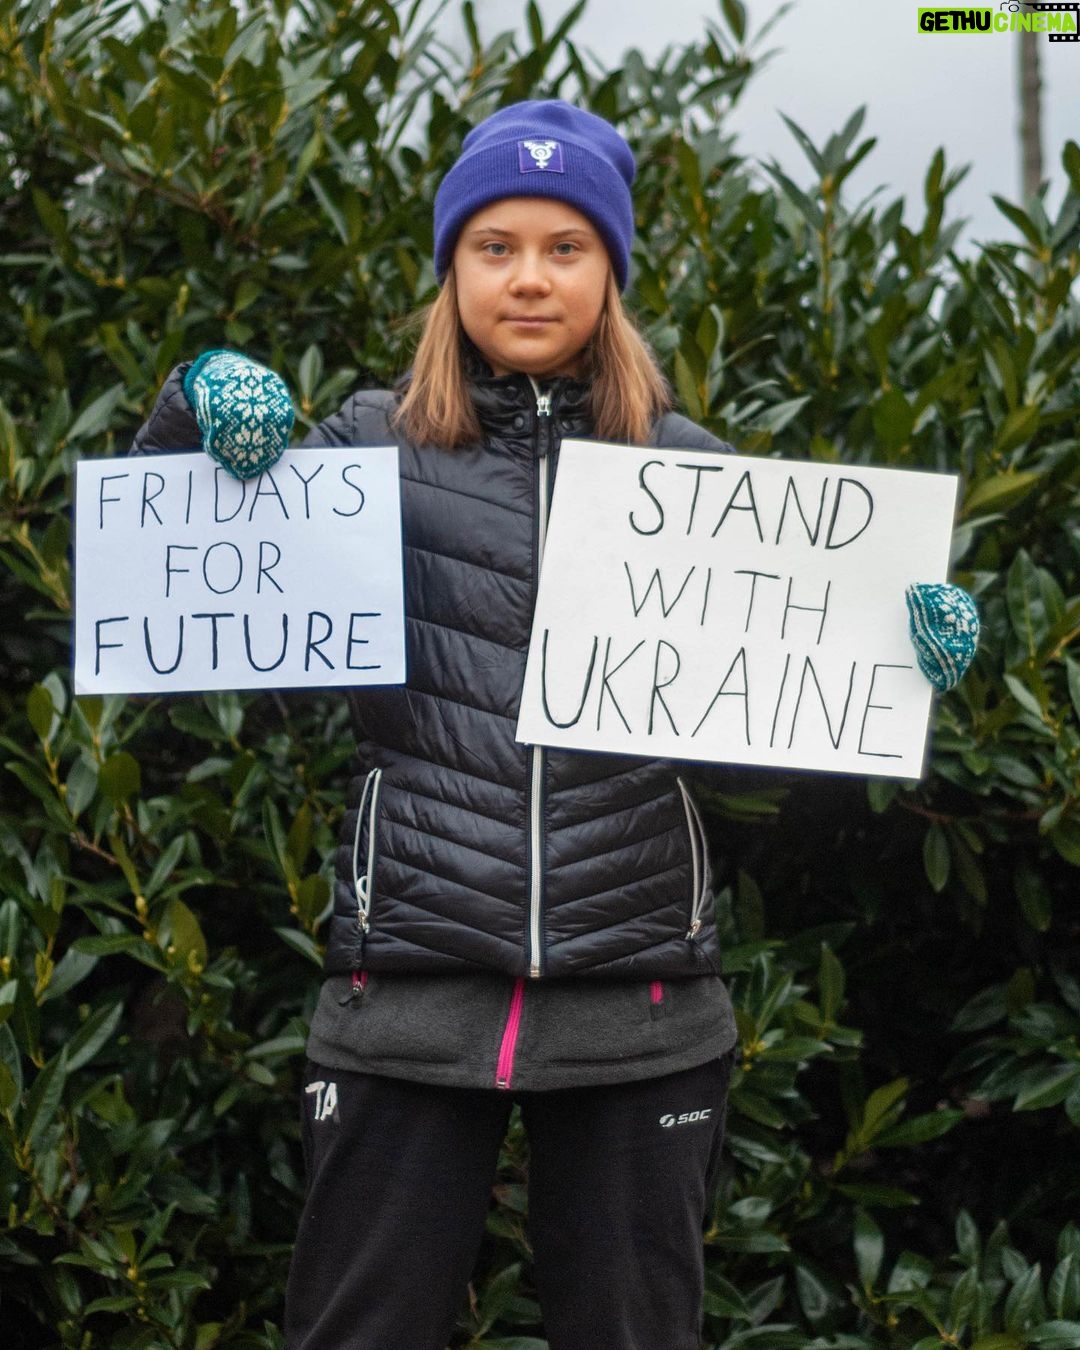 GETHUCINEMA
FRIDAYS
FOR
FUTURE
STAND
WITH
UKRAINE
TA
SOC